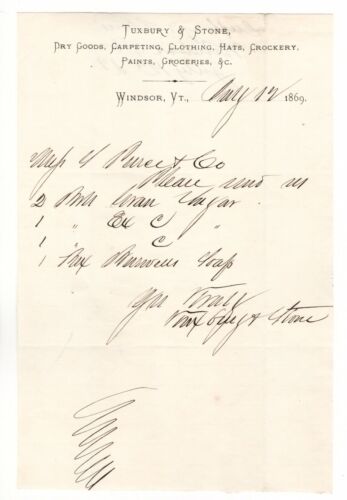 Tuxbury & Stone,
Dry Goods, Carpeting, Clothing, Hats, Crockery,
Paints, Groceries, &c.
Windsor, Vt., 12 1869.
Mess S Pierce & Co
Please send us
2 Bbls Gran Sugar
1 " Ex C "
1 " C "
1 Box Soap
Yrs Truly
Tuxbury & Stone